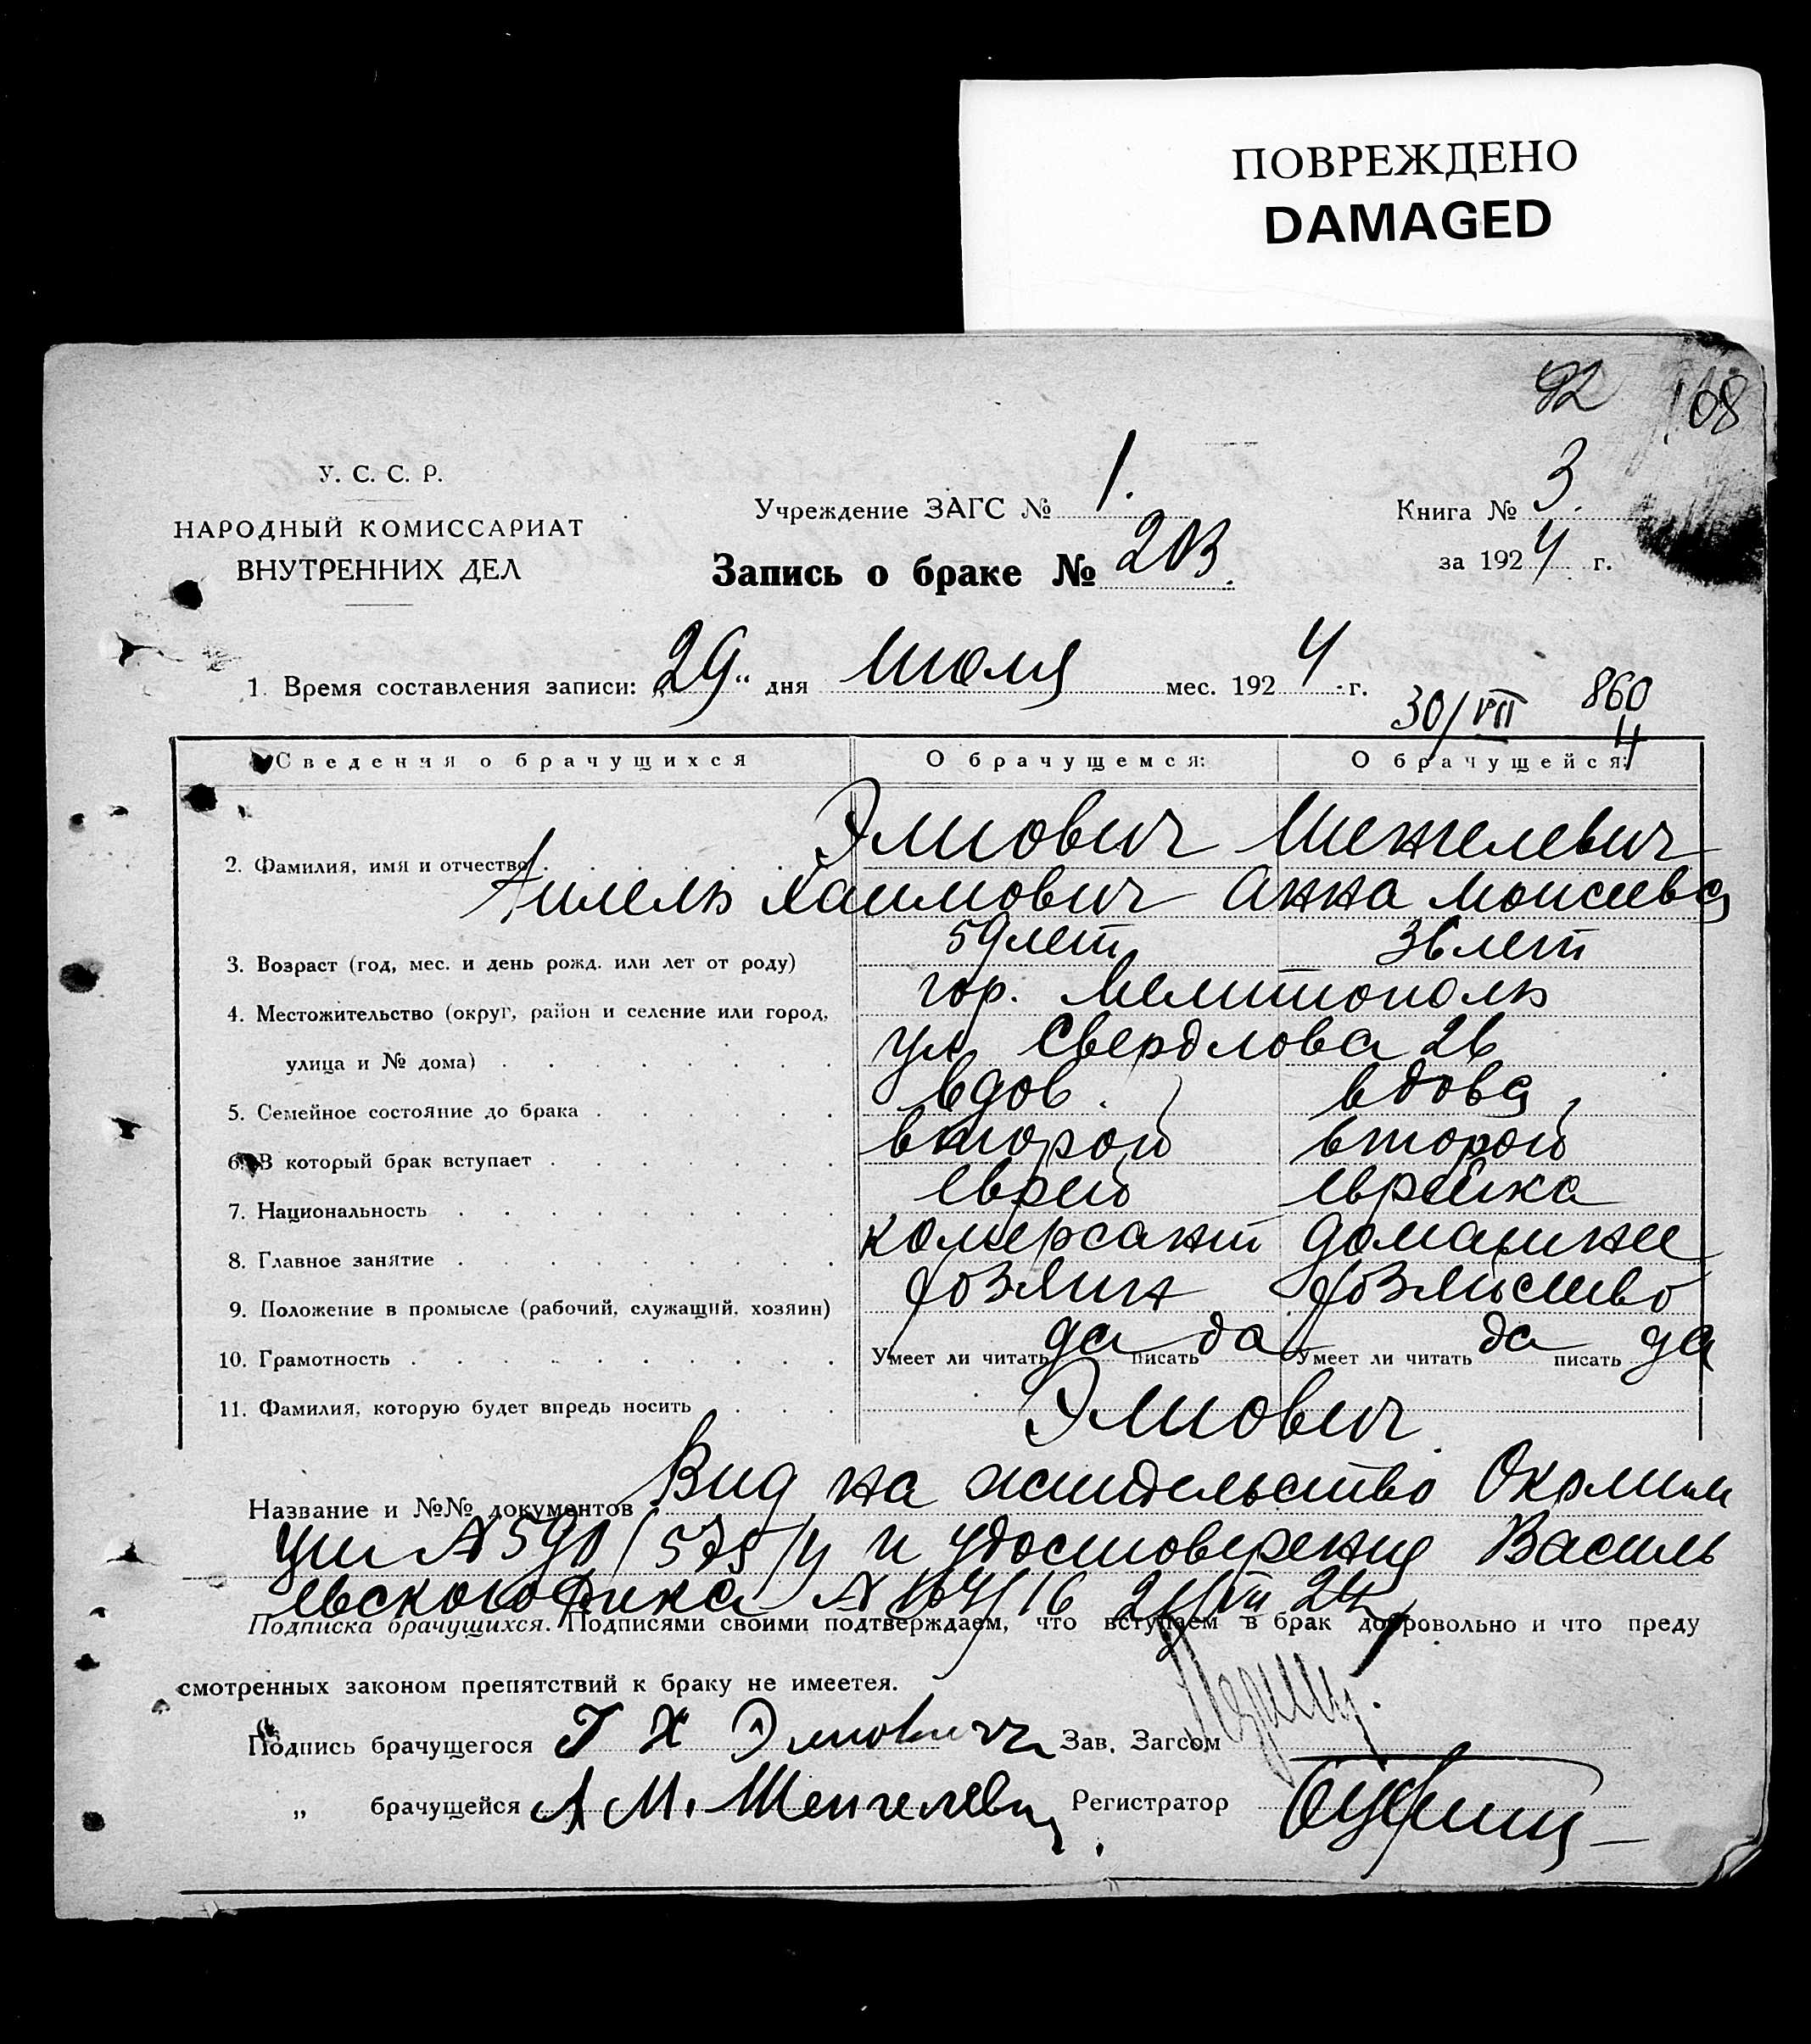 ПОВРЕЖДЕНО
DAMAGED
92 108
У. С. С. Р.
НАРОДНЫЙ КОМИССАРИАТ
ВНУТРЕННИХ ДЕЛ
Учреждение ЗАГС № 1.
Книга № 3.
Запись о браке № 203.
за 1924 г.
1. Время составления записи: „29" дня Июля мес. 1924 г.
30/VII 860
4
Сведения о брачущихся О брачущемся: О брачущейся:
Элиович Шенгелевич
2. Фамилия, имя и отчество
Гилель Хаимович Анна Моисеевна
59 лет 36 лет
3. Возраст (год, мес. и день рожд. или лет от роду)
гор. Мелитополь
4. Местожительство (округ, район и селение или город,
улица и № дома) ул Свердлова 26
5. Семейное состояние до брака вдов. вдова
6. В который брак вступает второй второй
7. Национальность еврей еврейка
8. Главное занятие комерсант домашнее
9. Положение в промысле (рабочий, служащий, хозяин) хозяин хозяйство
10. Грамотность Умеет ли читать да писать да Умеет ли читать да писать да
11. Фамилия, которую будет впредь носить Элиович
Название и №№ документов Вид на жительство Окрмили
ции № 590/575/4 и удостоверения Василь
евского 16 24
Подписка брачущихся. Подписями своими подтверждаем, что вступаем в брак добровольно и что преду
смотренных законом препятствий к браку не имеется.
Подпись брачущегося Г Х Элиович Зав. Загсом
„ брачущейся А М. Шенгелевич Регистратор